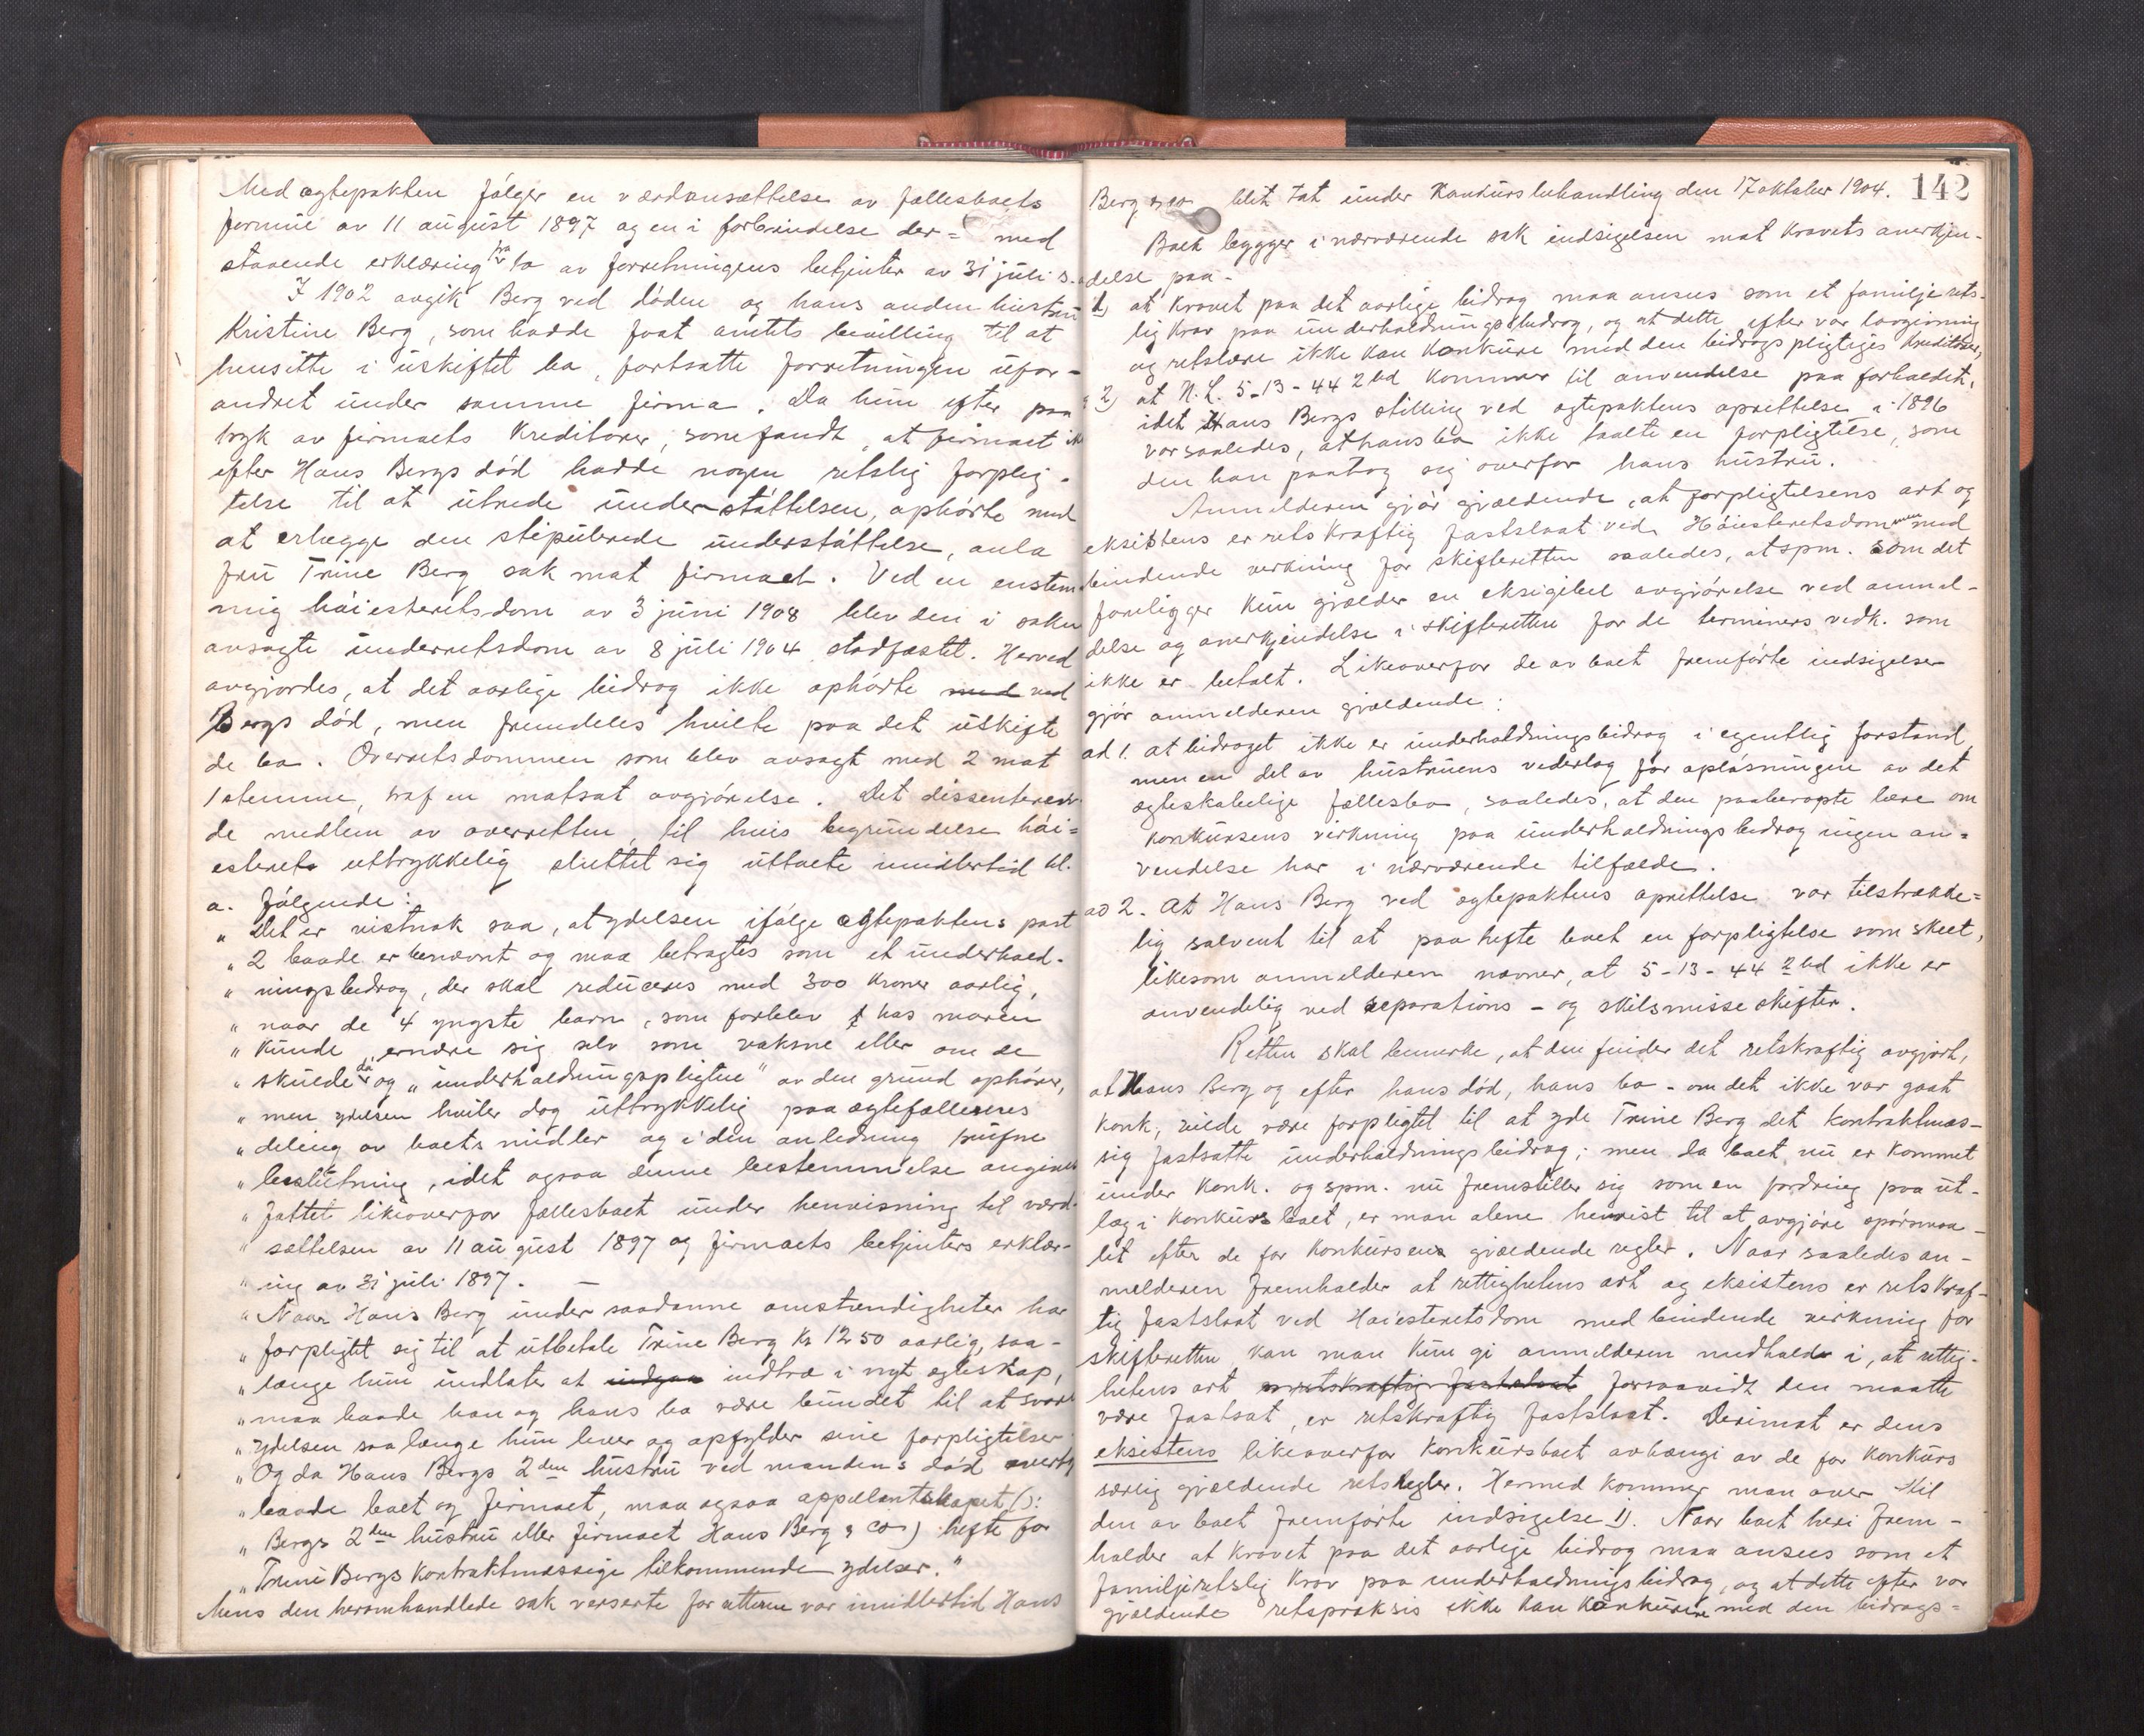 Med ægtepakten følger en værdansættelse av fællesboets
formue av 11 august 1897 og en i forbindelse der= med
staaende erklæring fra to av forretningens betjenter av 31 juli s.a.
I 1902 avgik Berg ved døden og hans anden hustru
Kristine Berg, som hadde faat amtets bevilling til at
hensitte i uskiftet bo, fortsatte forretningen ufor-
andret under samme firma. Da hun efter paa
tryk av firmaets kreditorer, som fandt, at firmaet ik
efter Hans Bergs død hadde nogen retslig forplig-
telse til at utrede understøttelsen, ophørte med
at erlægge den stipulerede understøttelse, anla
fru Trine Berg sak mot firmaet. Ved en enstem
mig høiesteretsdom av 3 juni 1908 blev den i saken
avsagte underretsdom av 8 juli 1904 stadfæstet. Herved
avgjordes, at det aarlige bidrag ikke ophørte med ved
Bergs død, men fremdeles hvilte paa det uskifte
de bo. Overretsdommen som blev avsagt med 2 mot
1 stemme, traf en motsat avgjørelse. Det dissenteren
de medlem av overretten, til hvis begrundelse høi=
esteret uttrykkelig sluttet sig uttalte imidlertid bl.
a. følgende:
„ Det er vistnok saa, at ydelsen ifølge ægtepaktens post
„ 2 baade er benævnt og maa betragtes som et underhold-
„ ningsbidrag, der skal reduceres med 300 kroner aarlig,
„ naar de 4 yngste barn, som forblev hos moren
„ kunde ernære sig selv som voksne eller om de
„ skulde dø og „underholdningspligten" av den grund ophører,
„ men ydelsen hviler dog uttrykkelig paa ægtefællernes
„ deling av boets midler og i den anledning trufne
„ beslutning, idet ogsaa denne bestemmelse angives
„ fattet likeoverfor fællesboet under henvisning til værd-
„ sættelsen av 11 august 1897 og firmaets betjenters erklær-
„ ing av 31 juli 1897. —
„ Naar Hans Berg under saadanne omstændigheter har
„ forpligtet sig til at utbetale Trine Berg Kr 1250 aarlig, saa-
„ længe hun undlater at indgaa indtræ i nyt egteskap,
„ maa baade han og hans bo være bundet til at svare
„ ydelsen saa længe hun lever og opfylder sine forpligtelser.
„ Og da Hans Bergs 2den hustru ved mandens død overtok
„ baade boet og firmaet, maa ogsaa appellantskapet (ɔ:
„ Bergs 2den hustru eller firmaet Hans Berg & co) hefte for
„ Trine Bergs kontraktmæssige tilkommende ydelser."
Mens den heromhandlede sak verserte for retterne var imidlertid Hans
142
Berg & co blit tat under Konkursbehandling den 17 oktober 1904.
Boet bygger i nærværende sak indsigelsen mot kravets anerkjen-
delse paa-
1) at kravet paa det aarlige bidrag maa ansees som et familjerets-
lig krav paa underholdningsbidrag, og at dette efter vor lovgivning
og retslære ikke kan konkurere med den bidragspligtiges kreditorer,
2) at N.L. 5-13-44 2 led kommer til anvendelse paa forholdet,
idet Hans Bergs stilling ved ægtepaktens oprettelse i 1896
var saaledes, at hans bo ikke taalte en forpligtelse, som
den han paatog sig overfor hans hustru.
Anmelderen gjør gjældende, at forpligtelsens art og
eksistens er retskraftig fastslaat ved Høiesteretsdommen med
bindende virkning for skifteretten saaledes, at spm. som det
foreligger kun gjælder en eksigibel avgjørelse ved anmel-
delse og anerkjendelse i skifteretten for de terminers vedk. som
ikke er betalt. Likeoverfor de av boet fremførte indsigelser
gjør anmelderen gjældende:
ad 1. at bidraget ikke er underholdningsbidrag i egentlig forstand,
men en del av hustruens vederlag for opløsningen av det
ægteskabelige fællesbo, saaledes, at den paaberopte lære om
konkursens virkning paa underholdningsbidrag ingen an=
vendelse har i nærværende tilfælde.
ad 2. At Hans Berg ved ægtepaktens oprettelse var tilstrække=
lig solvent til at paahefte boet en forpligtelse som skeet,
likesom anmelderen nævner, at 5-13-44 2 led ikke er
anvendelig ved separations- og skilsmisseskifter.
Retten skal bemerke, at den finder det retskraftig avgjort,
at Hans Berg og efter hans død, hans bo - om det ikke var gaat
konk, vilde være forpligtet til at yde Trine Berg det kontraktmæs-
sig fastsatte underholdningsbidrag; men da boet nu er kommet
under konk. og spm. nu fremstiller sig som en fordring paa ut-
læg i konkursboet, er man alene henvist til at avgjøre spørsmaa-
let efter de for konkursen gjældende regler. Naar saaledes an-
melderen fremholder at rettighetens art og eksistens er retskraf-
tig fastslaat ved Høiesteretsdom med bindende virkning for
skifteretten kan man kun gi anmelderen medhold i, at rettig-
hetens art er retskraftig fastslaat forsaavidt den maatte
være fastsat, er retskraftig fastslaat. Derimot er dens
eksistens likeoverfor konkursboet avhængi av de for konkurs
særlig gjældende retsregler. Hermed kommer man over til
den av boet fremførte indsigelse 1). Naar boet heri frem-
holder at kravet paa det aarlige bidrag maa ansees som et
familjeretslig krav paa underholdningsbidrag, og at dette efter vor
gjældende retspraksis ikke kan konkurere med den bidrags=